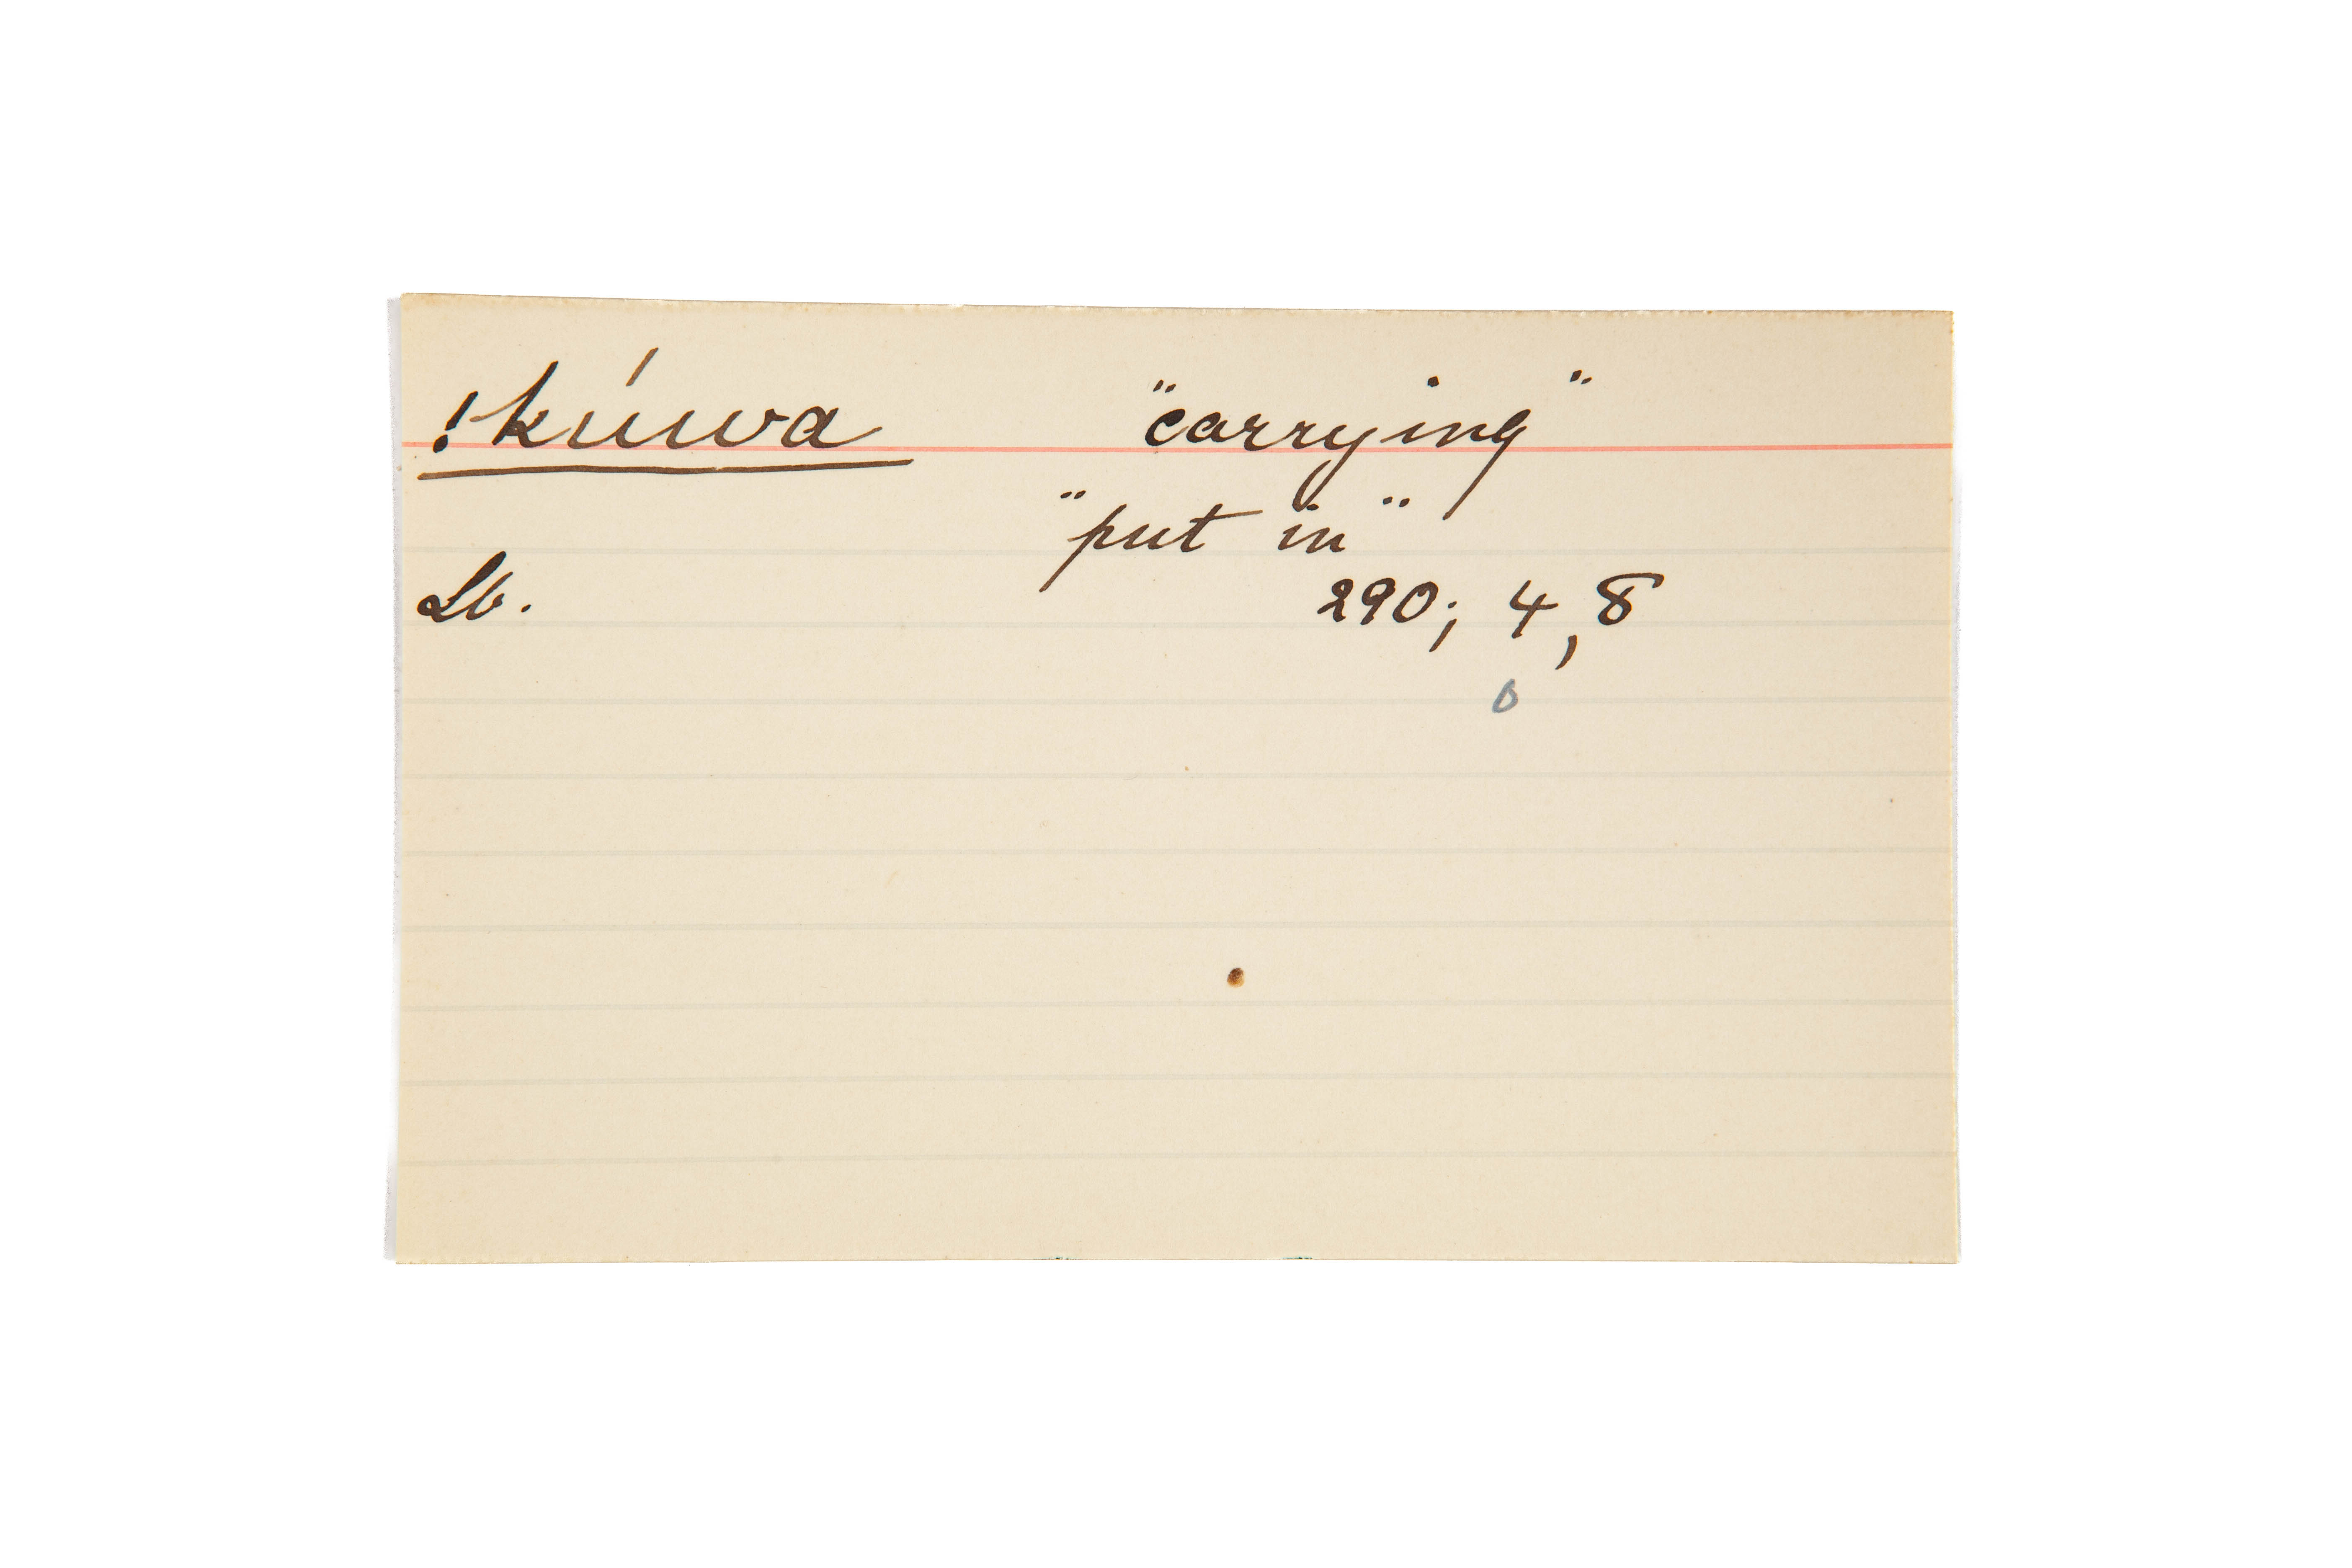 !kúwa "carrying"
"put in"
Lb. 290; 4, 8